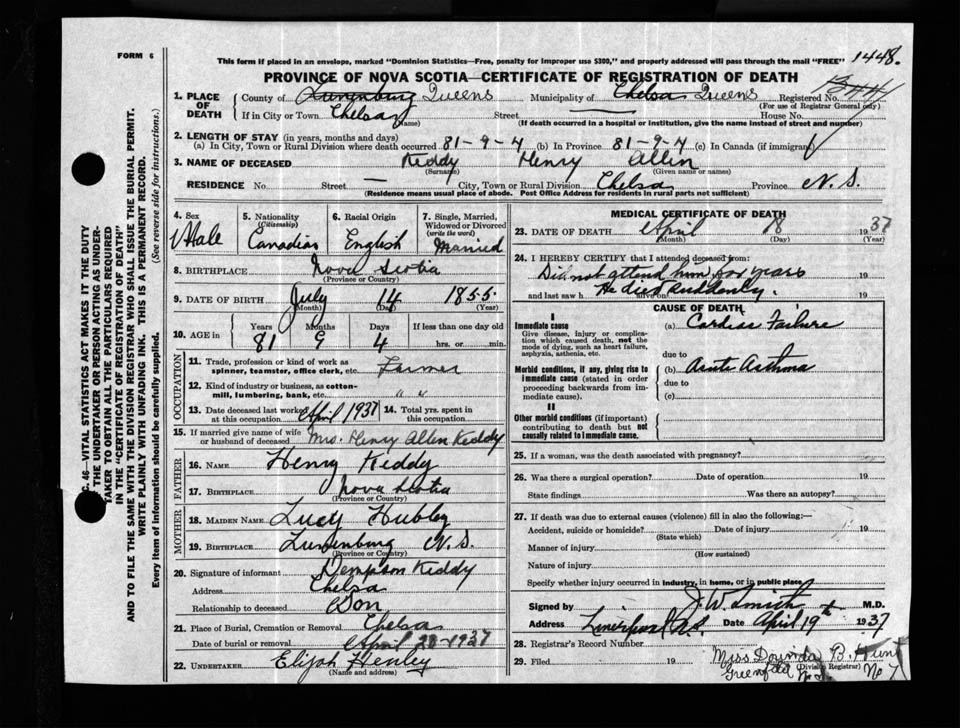 FORM 6
This form if placed in an envelope, marked "Dominion Statistics—Free, penalty for improper use $300," and properly addressed will pass through the mail "FREE"
1448.
PROVINCE OF NOVA SCOTIA—CERTIFICATE OF REGISTRATION OF DEATH
1. PLACE OF DEATH
County of Lunenburg Queens Municipality of Chelsa Queens Registered No.
(For use of Registrar General only)
If in City or Town Chelsa Street House No.
(If death occurred in a hospital or institution, give the name instead of street and number)
2. LENGTH OF STAY (in years, months and days)
(a) In City, Town or Rural Division where death occurred 81-9-4 (b) In Province 81-9-4 (c) In Canada (if immigrant)
3. NAME OF DECEASED Keddy Henry Allen
(Surname) (Given name or names)
RESIDENCE No. Street — City, Town or Rural Division Chelsa Province N.S.
(Residence means usual place of abode. Post Office Address for residents in rural parts not sufficient)
4. Sex Male
5. Nationality (Citizenship) Canadian
6. Racial Origin English
7. Single, Married, Widowed or Divorced (write the word) Married
8. BIRTHPLACE Nova Scotia
(Province or Country)
9. DATE OF BIRTH July 14 1855
(Month) (Day) (Year)
10. AGE in Years Months Days If less than one day old
81 9 4 hrs. or min.
OCCUPATION
11. Trade, profession or kind of work as spinner, teamster, office clerk, etc. Farmer
12. Kind of industry or business, as cotton-mill, lumbering, bank, etc. " "
13. Date deceased last worked at this occupation April 1937 14. Total yrs. spent in this occupation
15. If married give name of wife or husband of deceased Mrs. Henry Allen Keddy
FATHER
16. NAME Henry Keddy
17. BIRTHPLACE Nova Scotia
(Province or Country)
MOTHER
18. MAIDEN NAME Lucy Hubley
19. BIRTHPLACE Lunenburg N.S.
(Province or Country)
20. Signature of informant Dempson Keddy
Address Chelsa
Relationship to deceased Son
21. Place of Burial, Cremation or Removal Chelsa
Date of burial or removal April 20-1937
22. UNDERTAKER Elijah Henley
(Name and address)
MEDICAL CERTIFICATE OF DEATH
23. DATE OF DEATH April 18 1937
(Month) (Day) (Year)
24. I HEREBY CERTIFY that I attended deceased from:
Did not attend him for years 19
and last saw h alive on He died suddenly. 19
CAUSE OF DEATH
I
Immediate cause
Give disease, injury or complication which caused death, not the mode of dying, such as heart failure, asphyxia, asthenia, etc.
(a) Cardiac Failure
due to
Morbid conditions, if any, giving rise to immediate cause (stated in order proceeding backwards from immediate cause).
(b) Acute Asthma
due to
(c)
II
Other morbid conditions (if important) contributing to death but not causally related to immediate cause.
25. If a woman, was the death associated with pregnancy?
26. Was there a surgical operation? Date of operation 19
State findings Was there an autopsy?
27. If death was due to external causes (violence) fill in also the following:—
Accident, suicide or homicide? Date of injury 19
(State which)
Manner of injury
(How sustained)
Nature of injury
Specify whether injury occurred in industry, in home, or in public place
Signed by J. W. Smith M.D.
Address Liverpool N.S. Date April 19th 1937
28. Registrar's Record Number
29. Filed 19 Miss B. Hunt
(Division Registrar)
Greenfield No 7
C. 46—VITAL STATISTICS ACT MAKES IT THE DUTY
THE UNDERTAKER OR PERSON ACTING AS UNDER-
TAKER TO OBTAIN ALL THE PARTICULARS REQUIRED
IN THE "CERTIFICATE OF REGISTRATION OF DEATH"
AND TO FILE THE SAME WITH THE DIVISION REGISTRAR WHO SHALL ISSUE THE BURIAL PERMIT.
WRITE PLAINLY WITH UNFADING INK. THIS IS A PERMANENT RECORD.
Every item of information should be carefully supplied. (See reverse side for instructions.)